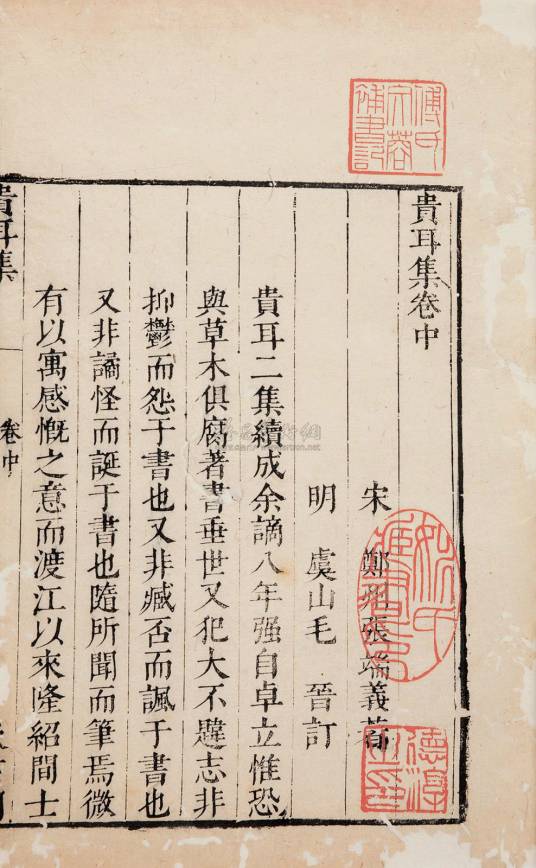 貴耳集卷中
宋　鄭州張端義著
明　虞山毛　晉訂
貴耳二集續成余謫八年强自卓立惟恐
與草木俱腐著書垂世又犯大不韙志非
抑鬱而怨于書也又非臧否而諷于書也
又非譎怪而誕于書也隨所聞而筆焉微
有以寓感慨之意而渡江以來隆紹間士
貴耳集
卷中
傅氏
補書記
德淳